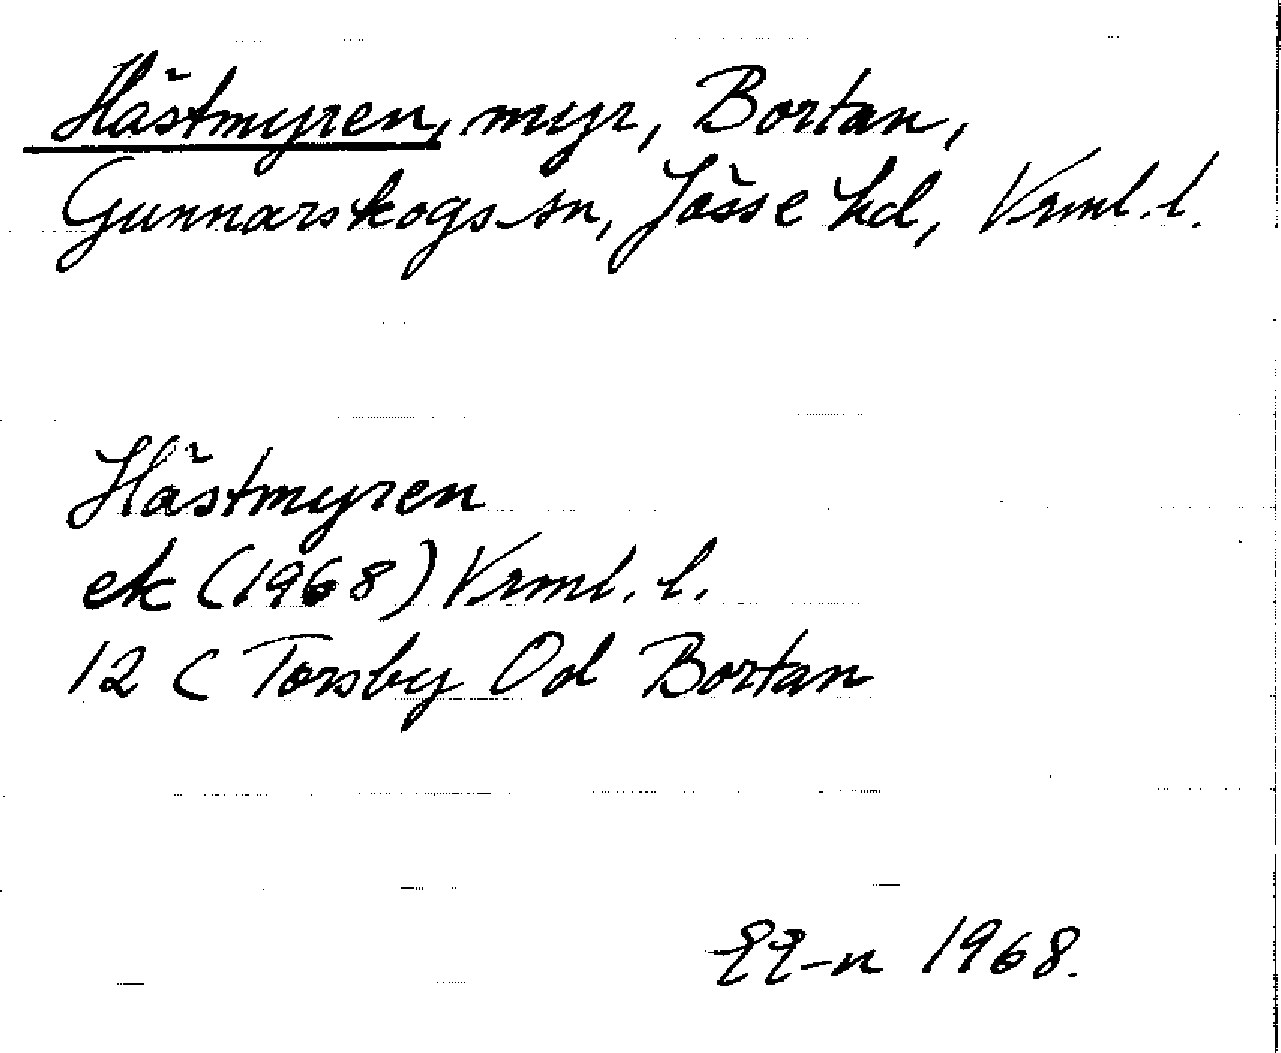 Hästmyren, myr, Bortan,
Gunnarskogs sn, Jösse hd, Vrml. l.
Hästmyren
ek (1968) Vrml. l.
12 C Torsby 0d Bortan
1968.